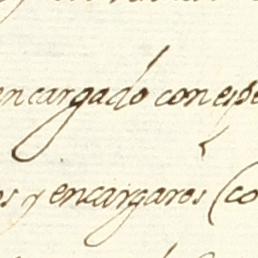 encargado con espe
os y encargaros (co